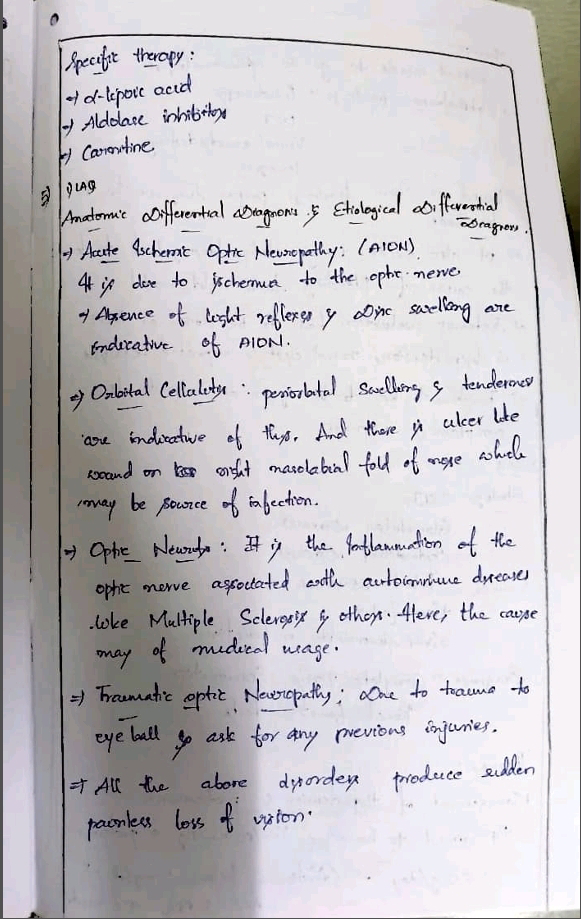 Specific therapy:
→ α-lipoic acid
→ Aldolase inhibitors
→ Carnitine
5) i) LAQ
Anatomic Differential Diagnosis & Etiological Differential
Diagnosis.
→ Acute Ischemic Optic Neuropathy: (AION)
It is due to ischemia to the optic nerve
→ Absence of light reflexes & Disc swelling are
indicative of AION.
⇒ Orbital Cellulitis: periorbital swelling & tenderness
are indicative of this. And there is ulcer like
wound on right nasolabial fold of nose which
may be source of infection.
⇒ Optic Neuritis: It is the Inflammation of the
optic nerve associated with autoimmune diseases
like Multiple Sclerosis & others. Here, the cause
may of medical usage.
⇒ Traumatic optic Neuropathy: Due to trauma to
eye ball so ask for any previous injuries.
⇒ All the above disorders produce sudden
painless loss of vision.